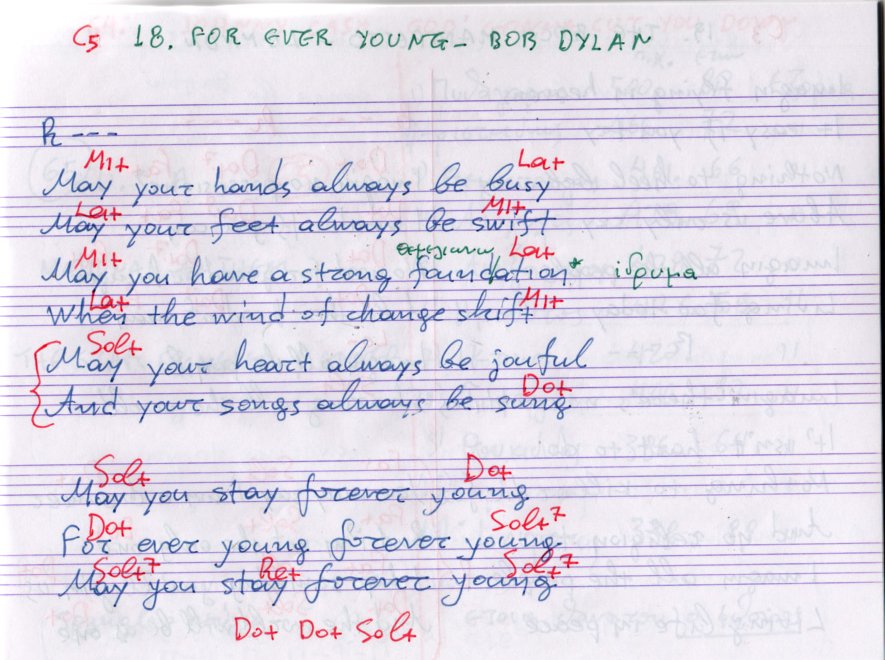 C5 18. FOR EVER YOUNG - BOB DYLAN
R ---
Mi+ La+
May your hands always be busy
La+ Mi+
May your feet always be swift
Mi+ La+
May you have a strong foundation* ίδρυμα
La+ Mi+
When the wind of change shift
Sol+
May your heart always be joyful
Do+
And your songs always be sung
Sol+ Do+
May you stay forever young
Do+ Sol+7
For ever young forever young
Sol+7 Re+ Sol+7
May you stay forever young
Do+ Do+ Sol+